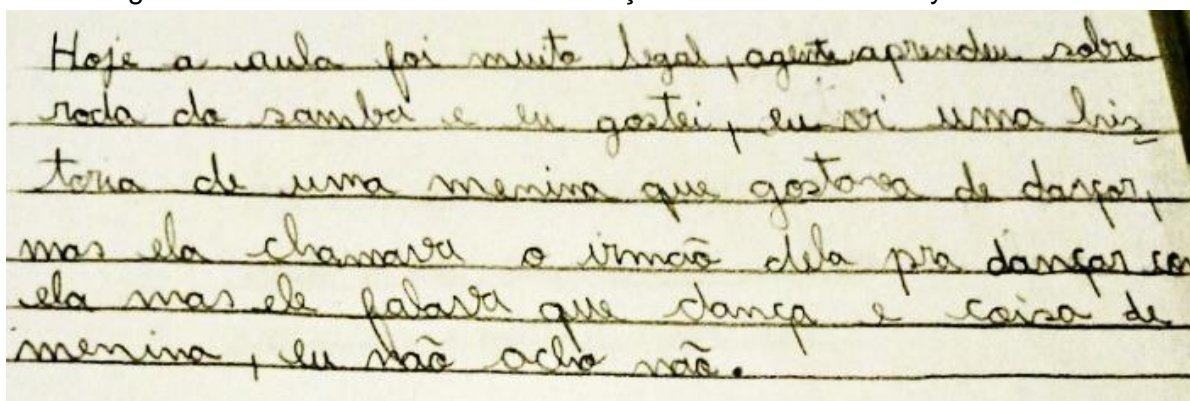 Hoje a aula foi muito legal, agente aprendeu sobre
roda da samba e eu gostei, eu vi uma his
toria de uma menina que gostava de dançar,
mas ela chamava o irmão dela pra dançar com
ela mas ele falava que dança e coisa de
menina, eu não acho não.